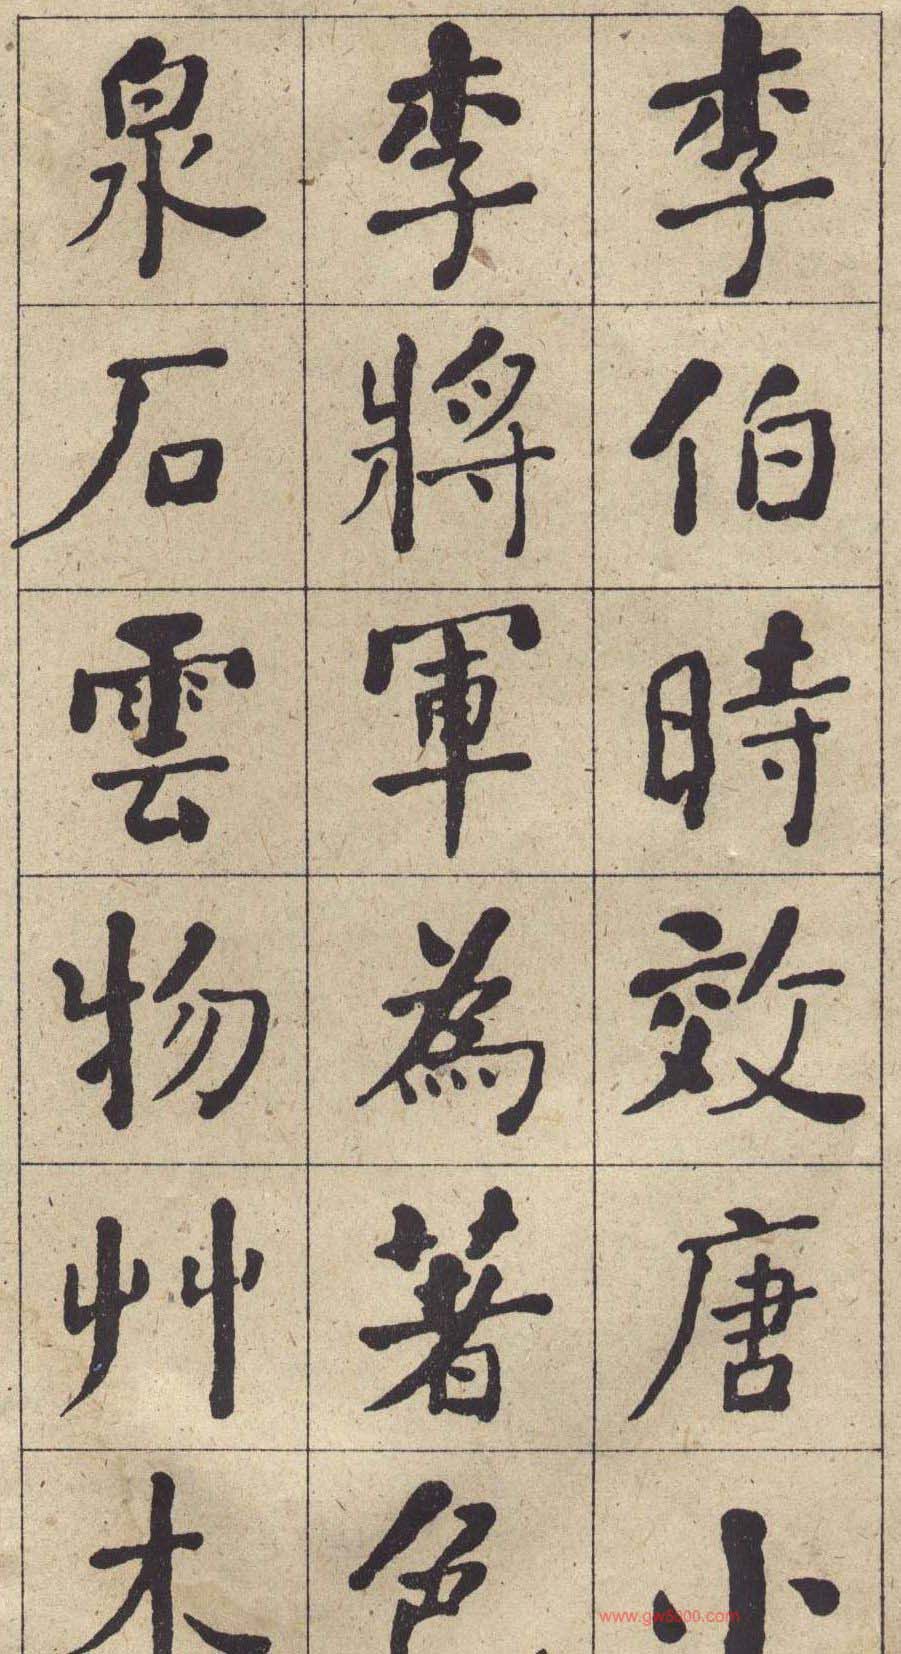 李伯時效唐小
李將軍為著色
泉石雲物艸木
www.gw5200.com